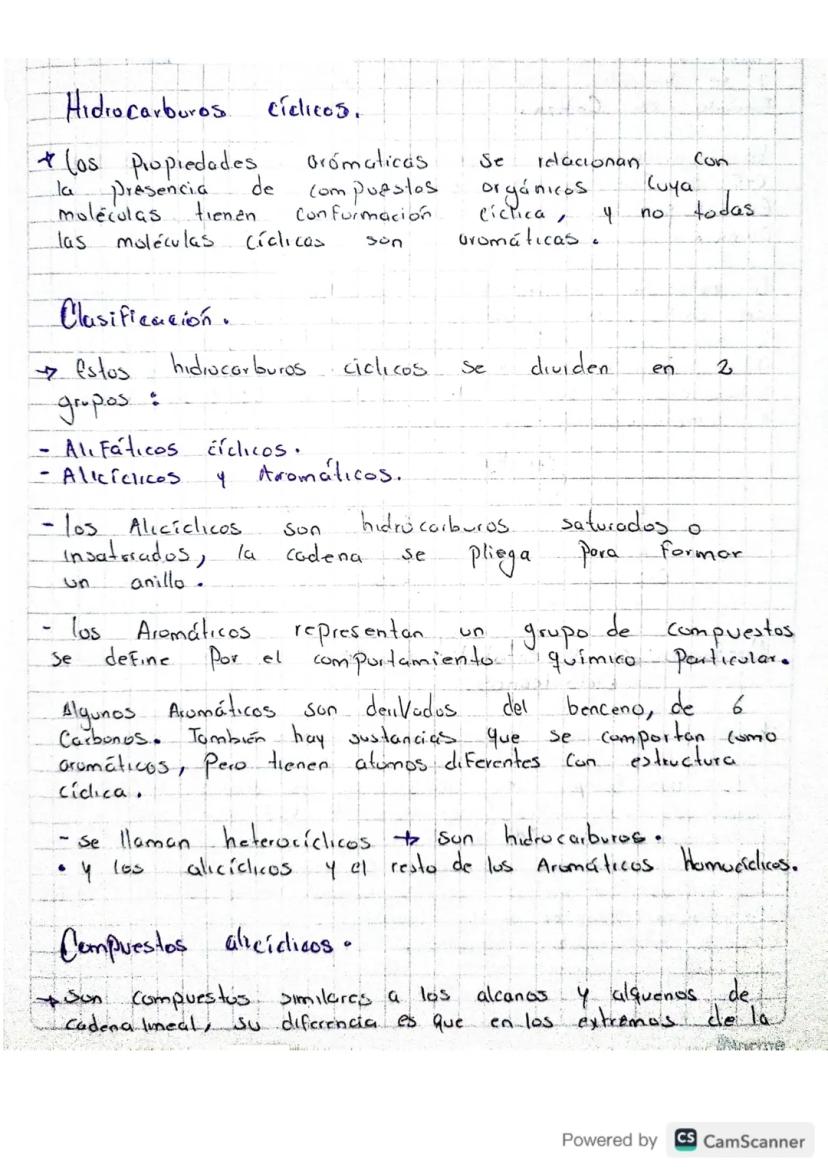 Hidrocarburos cíclicos.
* los Propiedades arómaticas se relacionan con
la presencia de compuestos orgánicos cuya
moléculas tienen conformación cíclica, y no todas
las moléculas cíclicas son aromáticas.
Clasificación.
→ Estos hidrocarburos ciclicos se dividen en 2
grupos :
- Alifáticos cíclicos.
- Alicíclicos y Aromáticos.
- los Alicíclicos son hidrocarburos saturados o
insaturados, la cadena se pliega para formar
un anillo.
- los Aromáticos representan un grupo de compuestos
se define por el comportamiento químico particular.
Algunos Aromáticos son derivados del benceno, de 6
Carbonos. También hay sustancias que se comportan como
aromáticos, Pero tienen atomos diferentes con estructura
cíclica.
- se llaman heterocíclicos → son hidrocarburos.
• y los alicíclicos y el resto de los Aromáticos Homocíclicos.
Compuestos alicíclicos.
→ son compuestos similares a los alcanos y alquenos de
cadena lineal, su diferencia es que en los extremos de la
Norma
Powered by CS CamScanner